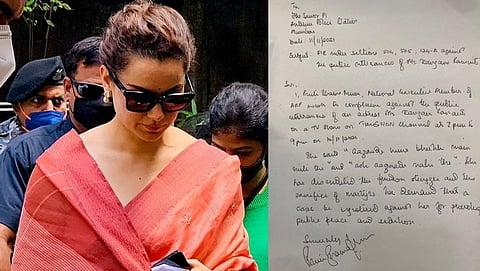 To
The Senior PI
Police
Mumbai
Date: 11/11/2021
Subject: FIR under sections 504, 505, 124-A against
the public utterances of Ms. Kangana Ranaut
Sir,
I, National Executive Member of
AAP to complain against the public
utterances of an actress Ms. Kangana Ranaut
on a TV show on channel at 7 pm to
9 pm on 10/11/2021
She said "aazaadi nahi bheekh main
mili the" and "asli aazaadi
has discredited the freedom struggle and
sacrifice of martyrs. We demand that a
case be registered against her for
public peace and sedition
Sincerely